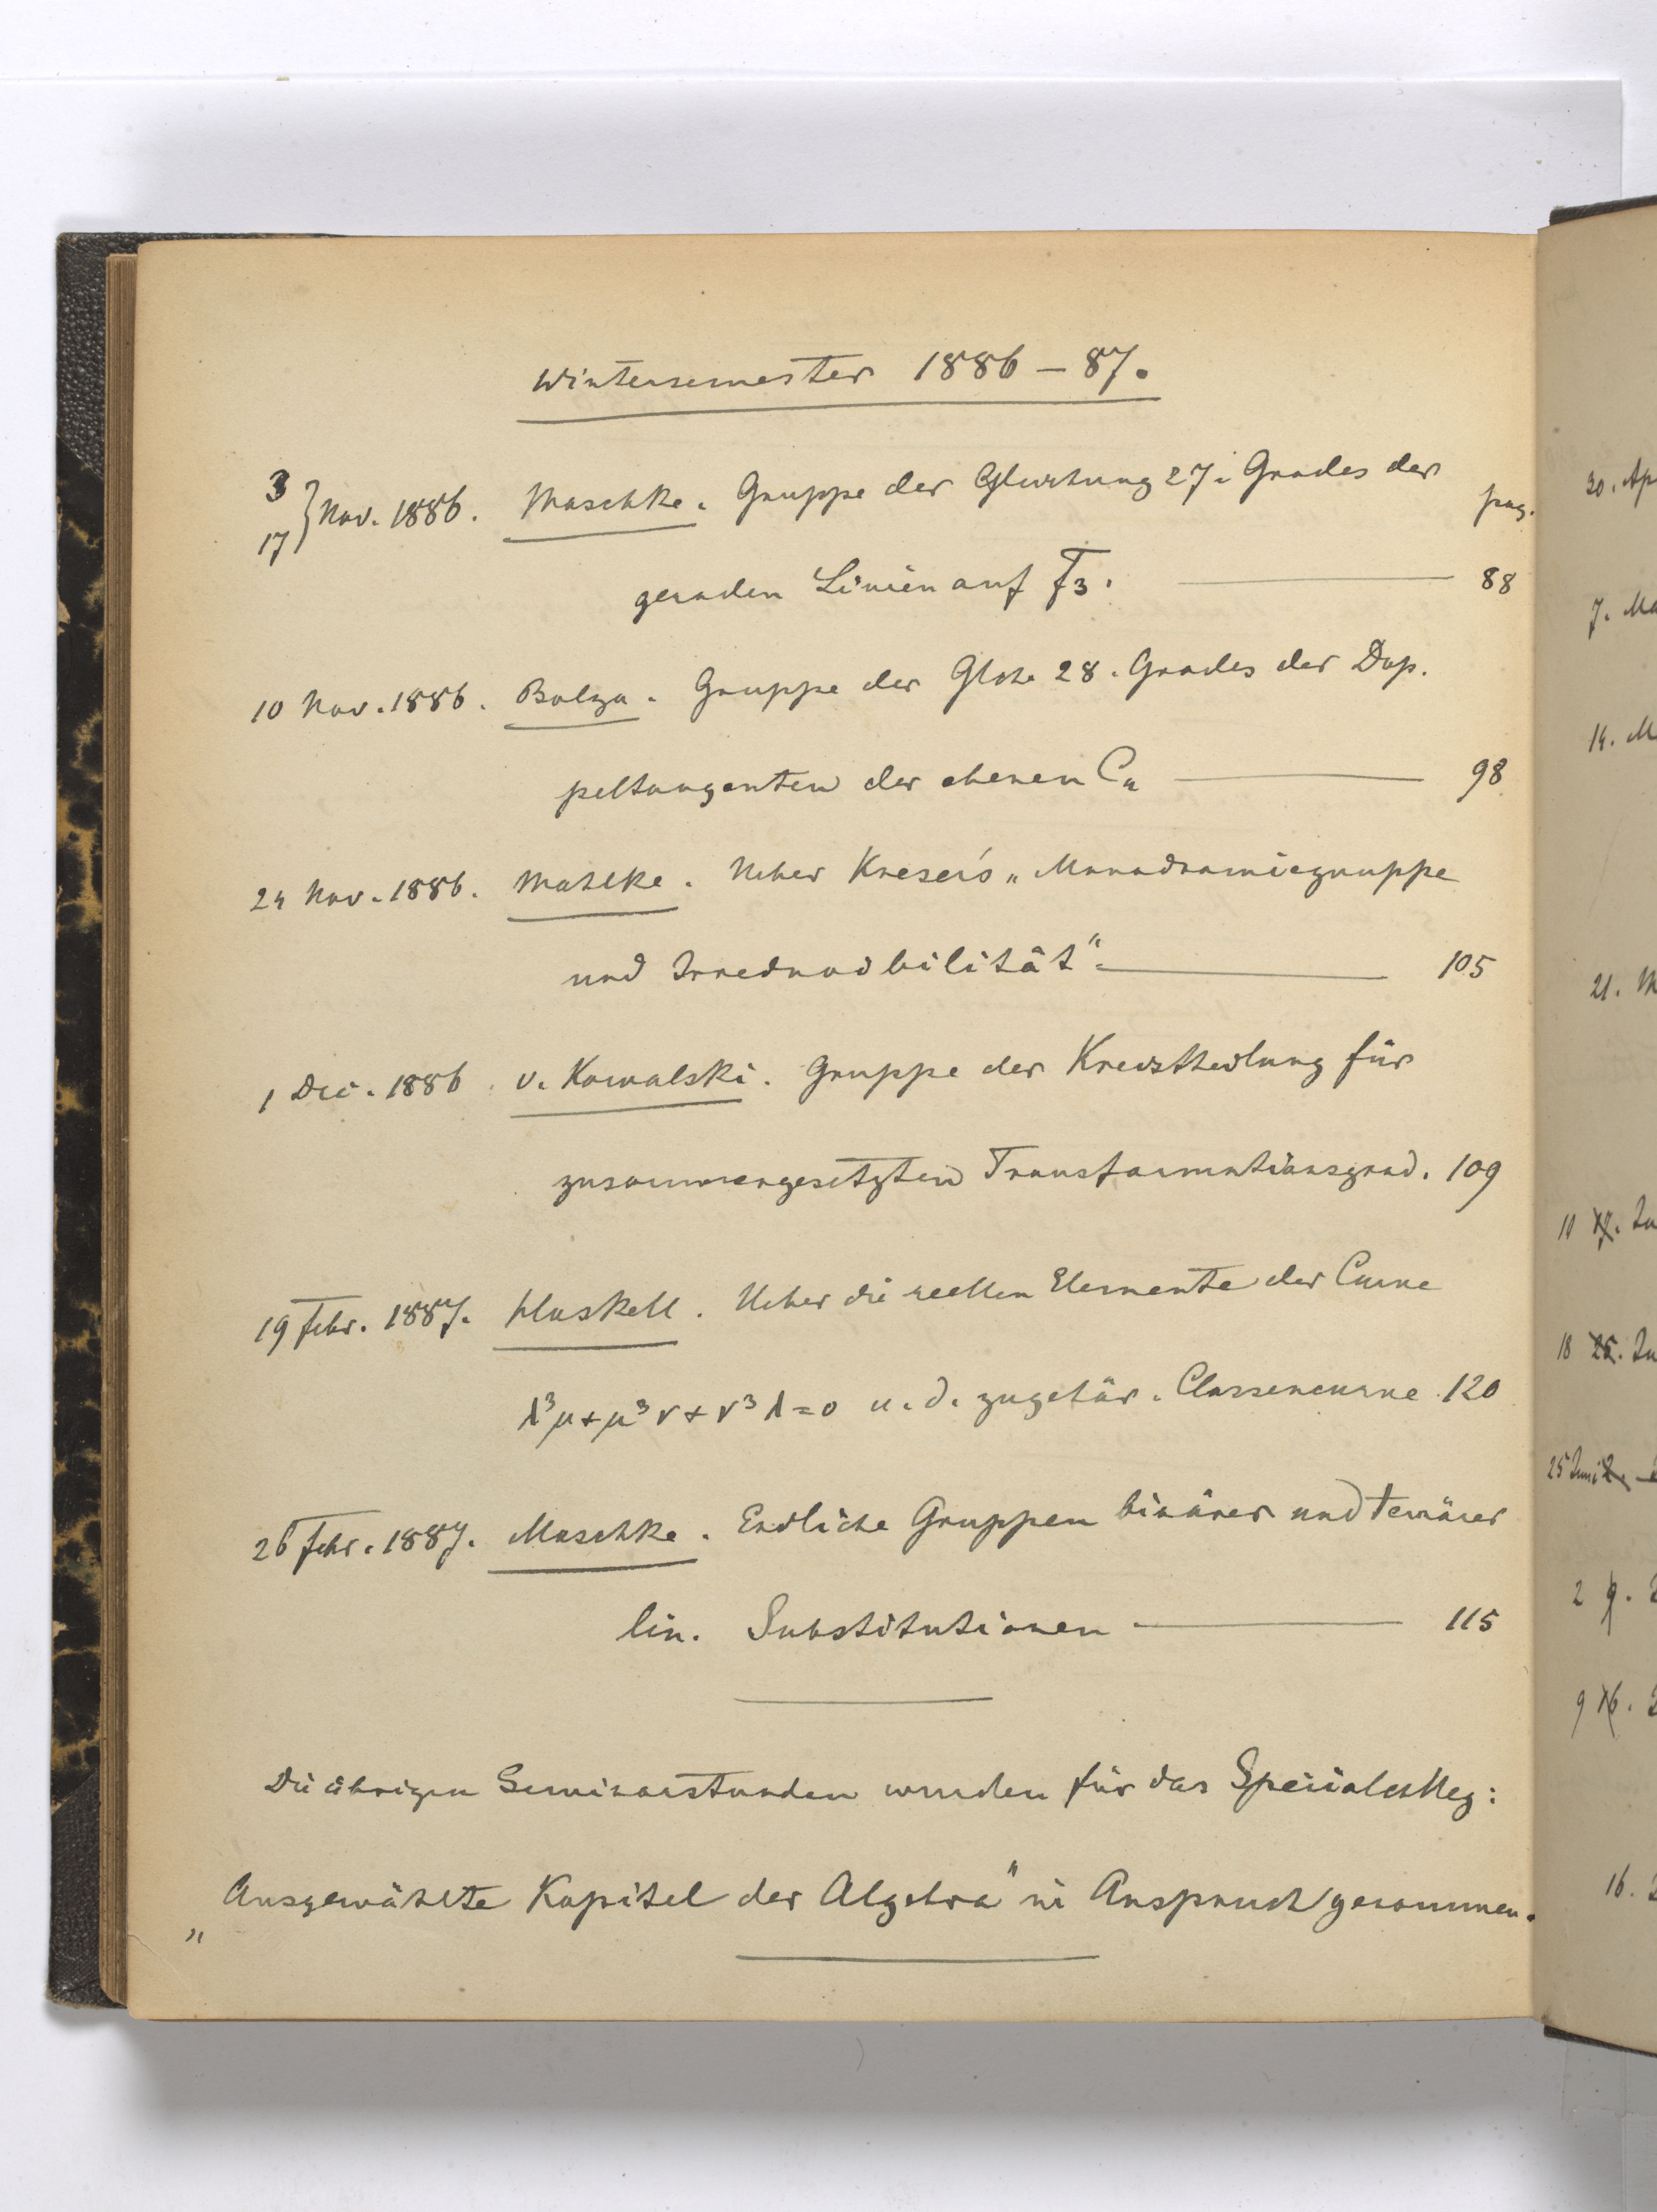 Wintersemester 1886–87.
3
17 } Nov. 1886. Maschke. Gruppe der Gleichung 27. Grades der
pag.
geraden Linien auf F3. 88
10 Nov. 1886. Bolza. Gruppe der Glche 28. Grades der Dop.
peltangenten der ebenen C4 98
24 Nov. 1886. Maschke. Ueber Kneser's „Monodromiegruppe
und Irreducibilität“ 105
1 Dec. 1886. v. Kowalski. Gruppe der Kreistheilung für
zusammengesetzten Transformationsgrad. 109
19 Febr. 1887. Haskell. Ueber die reellen Elemente der Curve
λ³μ+μ³ν+ν³λ=0 u. d. zugehör. Classencurve 120
26 Febr. 1887. Maschke. Endliche Gruppen binärer und ternärer
lin. Substitutionen 115
Die übrigen Seminarstunden wurden für das Specialcolleg:
„Ausgewählte Kapitel der Algebra“ in Anspruch genommen.
30. Ap
7. Ma
14. M
21. M
11 17. Ju
18 25. Ju
25 Juni 2.
2 9.
9 16.
16.